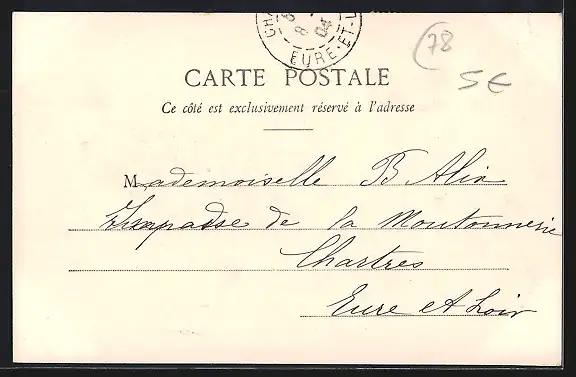 CHA
8
04
EURE-ET-L
(78
5€
CARTE POSTALE
Ce côté est exclusivement réservé à l'adresse
Mademoiselle B Alin
Impasse de la Moutonnerie
Chartres
Eure et Loir